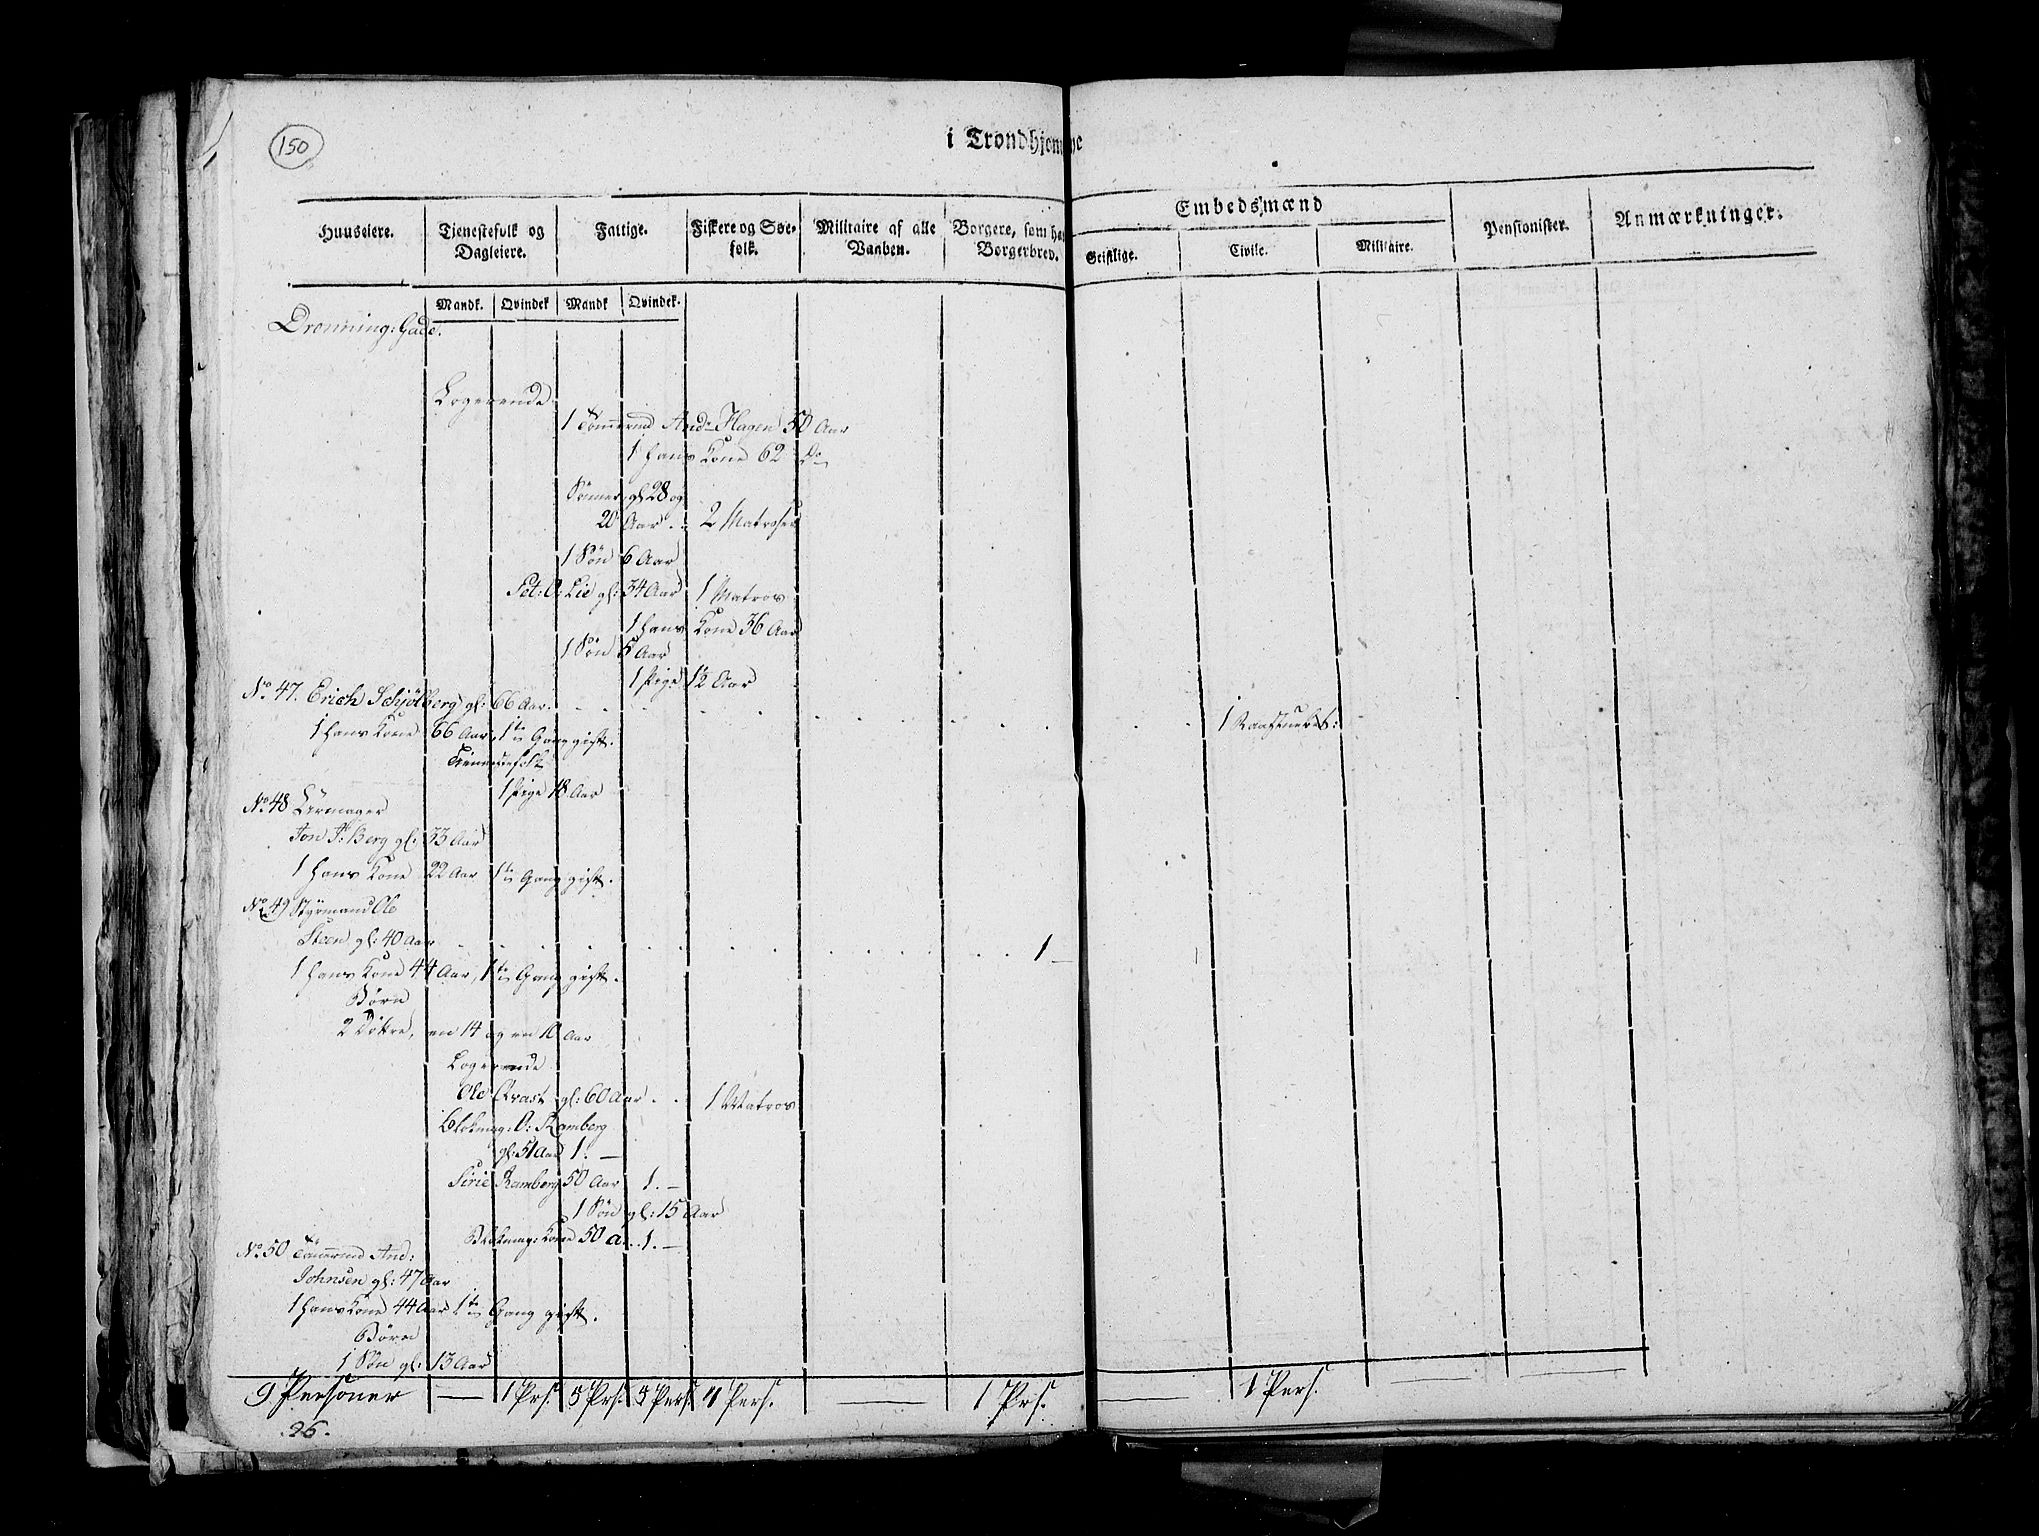 150
i Trondhjem
Embedsmænd
Huuseiere.
Tjenestefolk og Dagleiere.
Fattige.
Fiskere og Søe-folk.
Militaire af alle Vaaben.
Borgere, som ha Borgerbrev.
Geistlige.
Civile.
Militaire.
Pensionister.
Anmærkninger.
Mandk. Qvindek Mandk Qvindek.
Dronning: Gade.
Logerende
1 Tømermd And: Hagen 50 Aar
1 hans Kone 62 Do
Sønner gl 28 og
20 Aar . . 2 Matroser
1 Søn 6 Aar
Pet: O: Lie gl: 34 Aar 1 Matros
1 hans Kone 36 Aar
1 Søn 5 Aar
1 Pige 1½ Aar
No. 47. Erich Schjølberg gl: 66 Aar.
1 hans Kone 66 Aar, 1te Gang gift.
Tienestefolk
1 Pige 18 Aar
No. 48
Jon P: Berg gl: 33 Aar
1 hans Kone 22 Aar 1te Gang gift.
No. 49 Styrmand Ole
Steen gl: 40 Aar . . . 1 —
1 hans Kone 44 Aar, 1te Gang gift.
Børn
2 Døttre, en 14 og en 10 Aar
Logerende
Ole Qvast gl: 60 Aar . . 1 Matros
Blokmag: O: Ramberg
gl: 51 Aar 1. —
Sirie Ramberg 50 Aar 1. —
1 Søn gl: 15 Aar
Blokmag: Kone 50 a. . . 1. —
No. 50 Tømermd And:
Johnsen gl: 47 Aar
1 hans Kone 44 Aar 1te Gang gift.
Børn
1 Søn gl: 13 Aar
9 Personer — 1 Prs. 5 Prs. 5 Pers 4 Pers. — 1 Prs. — 1 Pers. — —
26.